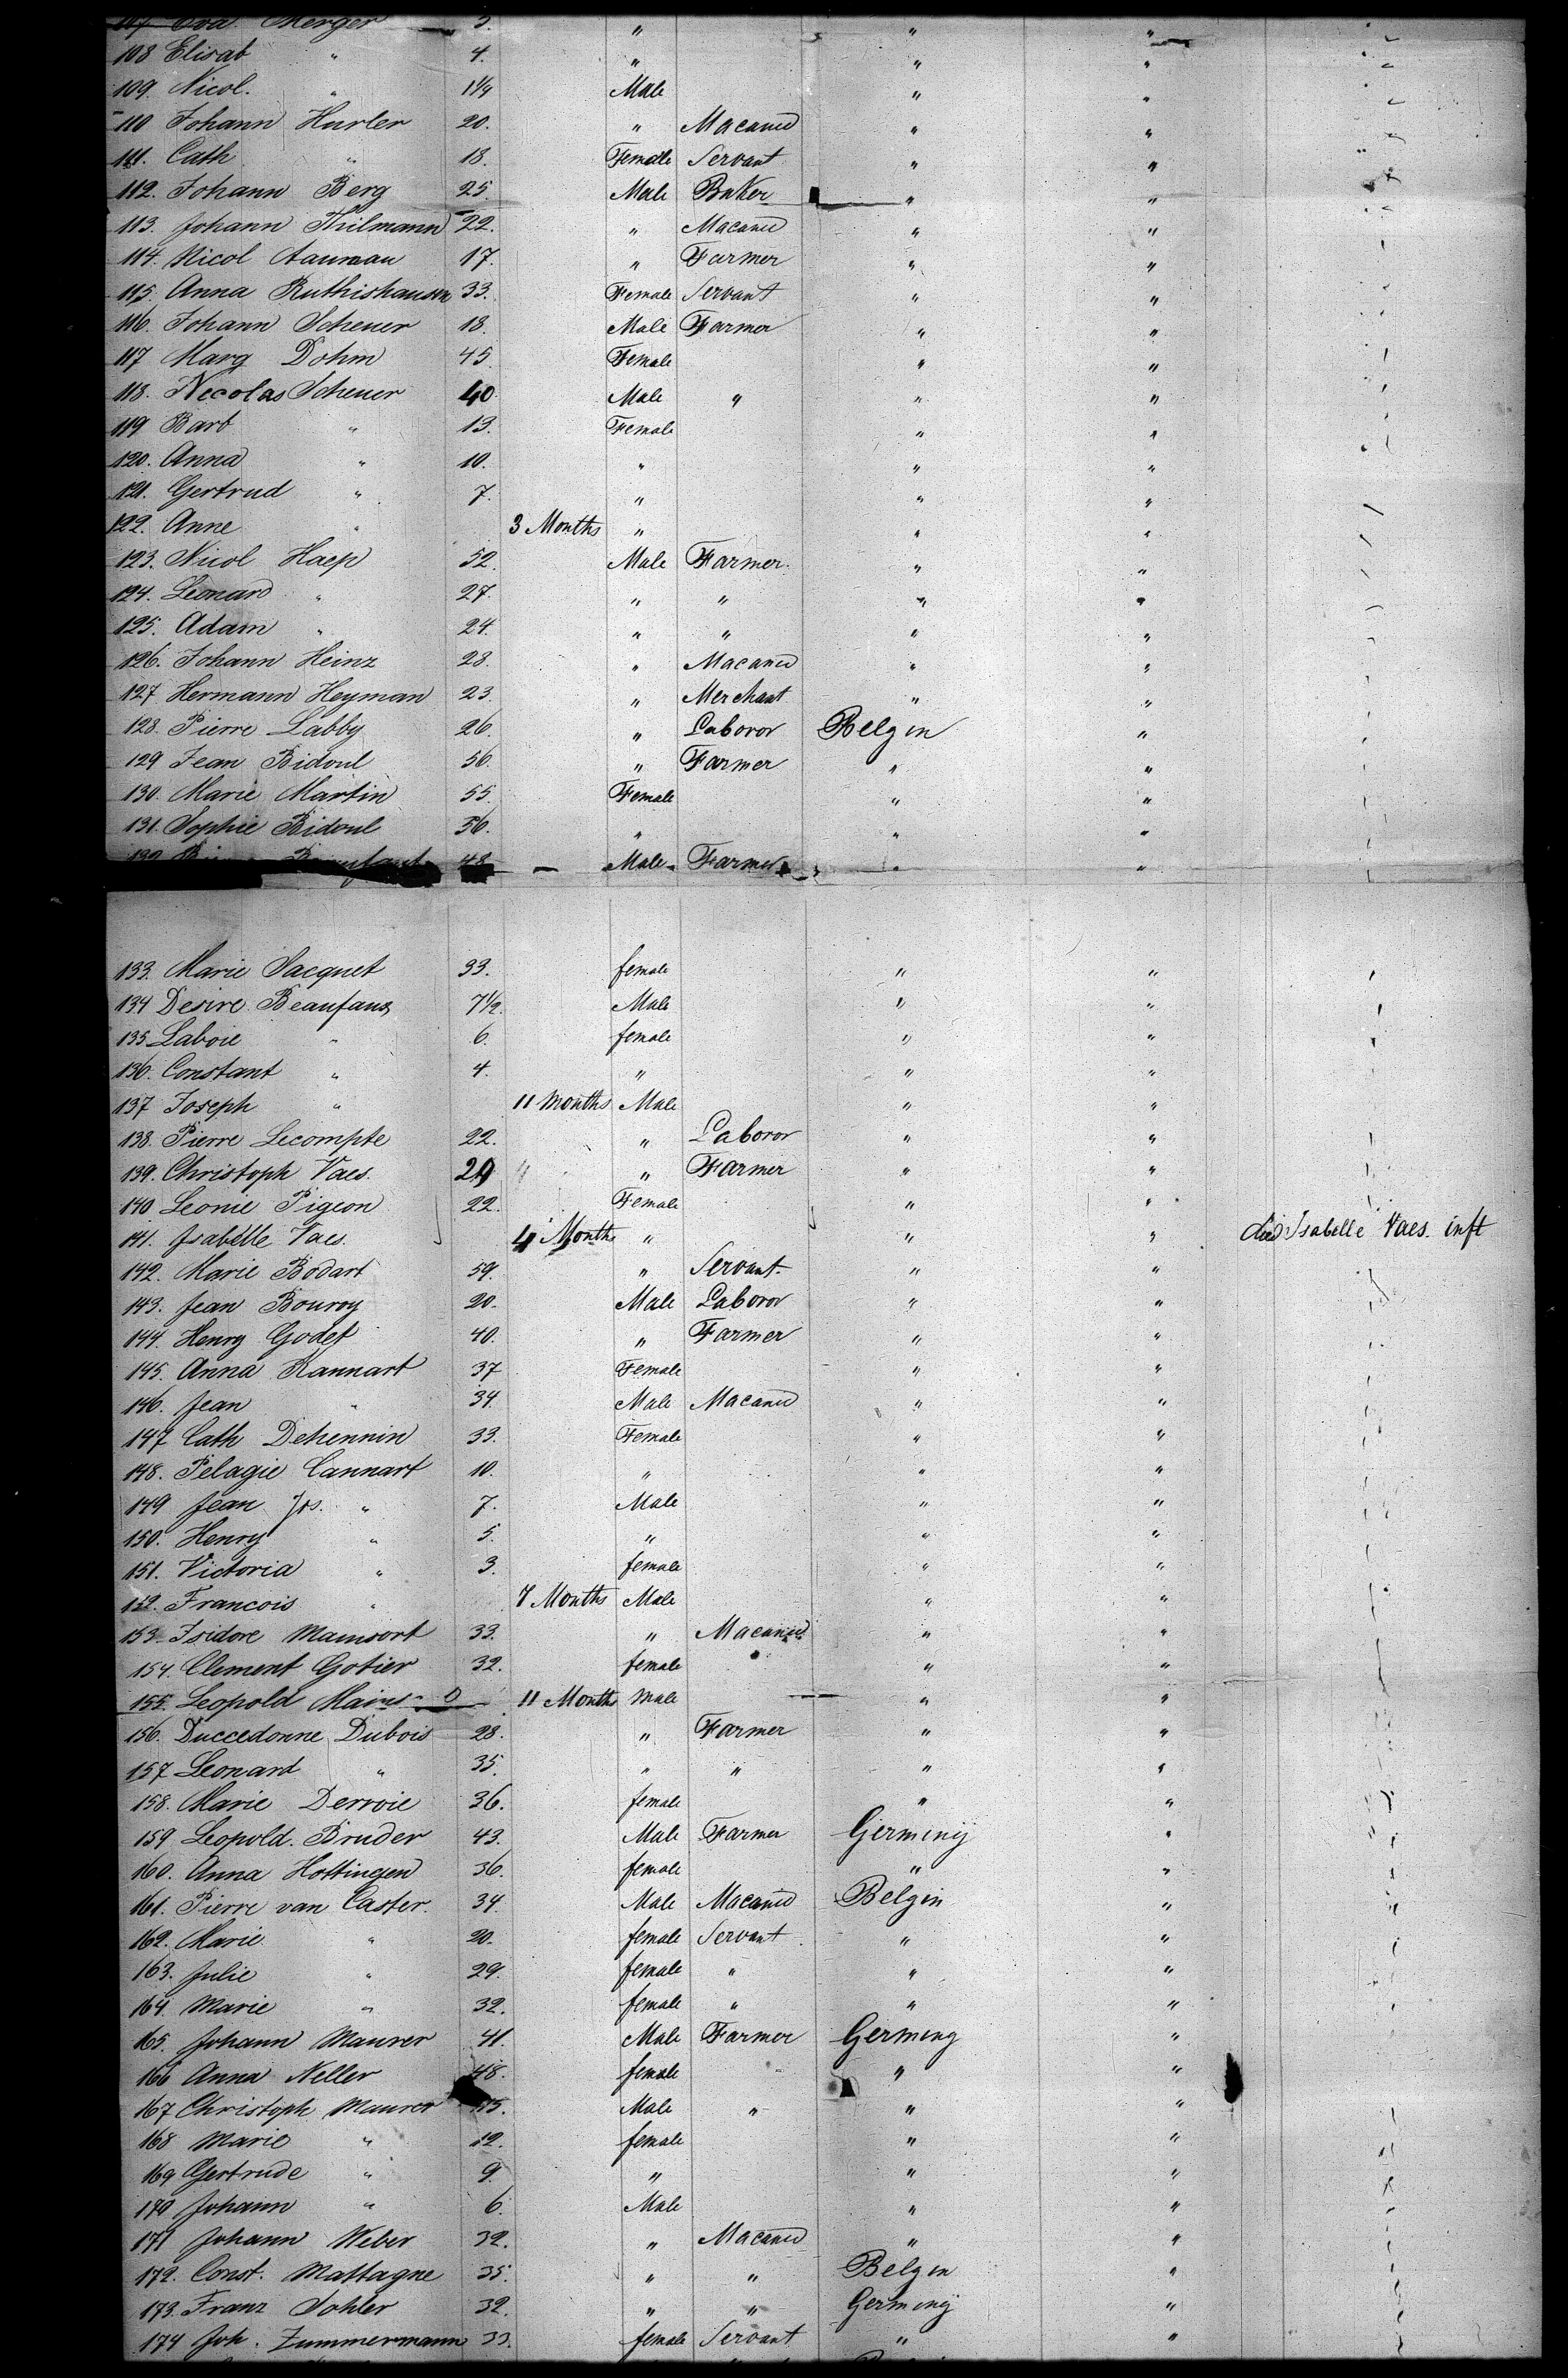 107 Eva Merger 3. " " "
108 Elisab " 4. " " "
109. Nicol. " 1 1/4 Male " "
110 Johann Hurler 20. " Macanic " "
111. Cath " 18. Female Servant " "
112. Johann Berg 25. Male Baker " "
113. Johann Thilmann 22. " Macanic " "
114. Nicol 17. " Farmer " "
115. Anna Ruthishausen 33. Female Servant " "
116. Johann Scheuer 18. Male Farmer " "
117 Marg Dohm 45. Female " "
118. Necolas Scheuer 40. Male " " "
119 Barb " 13. Female " "
120. Anna " 10. " " "
121. Gertrud " 7. " " "
122. Anne " 3 Months " " "
123. Nicol Haep 52. Male Farmer. " "
124. Leonard " 27. " " " "
125. Adam " 24. " " " "
126. Johann Heinz 28. " Macanic " "
127 Hermann Heyman 23. " Merchant " "
128. Pierre Labby 26. " Laboror Belgin "
129 Jean Bidoul 56. " Farmer " "
130. Marie Martin 55. Female " "
131. Sophie Bidoul 56. " " "
132 48 Male Farmer " "
133. Marie Jacquet 33. female " "
134 Desire Beaufaux 7 1/2. Male " "
135 Laboie " 6. female " "
136. Constant " 4. " " "
137 Joseph " 11 Months Male " "
138. Pierre Lecompte 22. " Laboror " "
139. Christoph Vaes. 29 " Farmer " "
140 Leonie Pigeon 22. Female " "
141. Isabelle Vaes. 4 Months " " " died Isabelle Vaes. inft
142. Marie Bodart 59. " Servant. " "
143. Jean Bouroy 20. Male Laboror " "
144. Henry Godet 40. " Farmer " "
145. Anna Kannart 37 Female " "
146. Jean " 34. Male Macanic " "
147 Cath Dehennin 33. Female " "
148. Pelagie Cannart 10. " " "
149 Jean Jos. " 7. Male " "
150. Henry " 5. " " "
151. Victoria " 3. female " "
152. Francois " 7 Months Male " "
153. Isidore Mainsort 33. " Macanic " "
154. Clement Gotier 32. female " "
155. Leopold Mains 11 Months Male " "
156. Duccedonne Dubois 28. " Farmer " "
157 Leonard " 35. " " " "
158. Marie Derroie 36. female " "
159 Leopold. Bruder 43. Male Farmer Germiny "
160. Anna Hottingen 36. female " "
161. Pierre van Caster. 34. Male Macanic Belgin "
162. Marie " 20. female Servant " "
163. Julie " 29. female " " "
164. Marie " 32. female " " "
165. Johann Maurer 41. Male Farmer Germiny "
166 Anna Neller 48. female " "
167 Christoph Maurer 15. Male " " "
168 Marie " 12. female " "
169 Gertrude " 9. " " "
170 Johann " 6. Male " "
171 Johann Weber 32. " Macanic " "
172. Const. Mattagne 35. " " Belgin "
173. Franz Sohler 32. " " Germiny "
174 Joh. Zummermann 33. female Servant " "